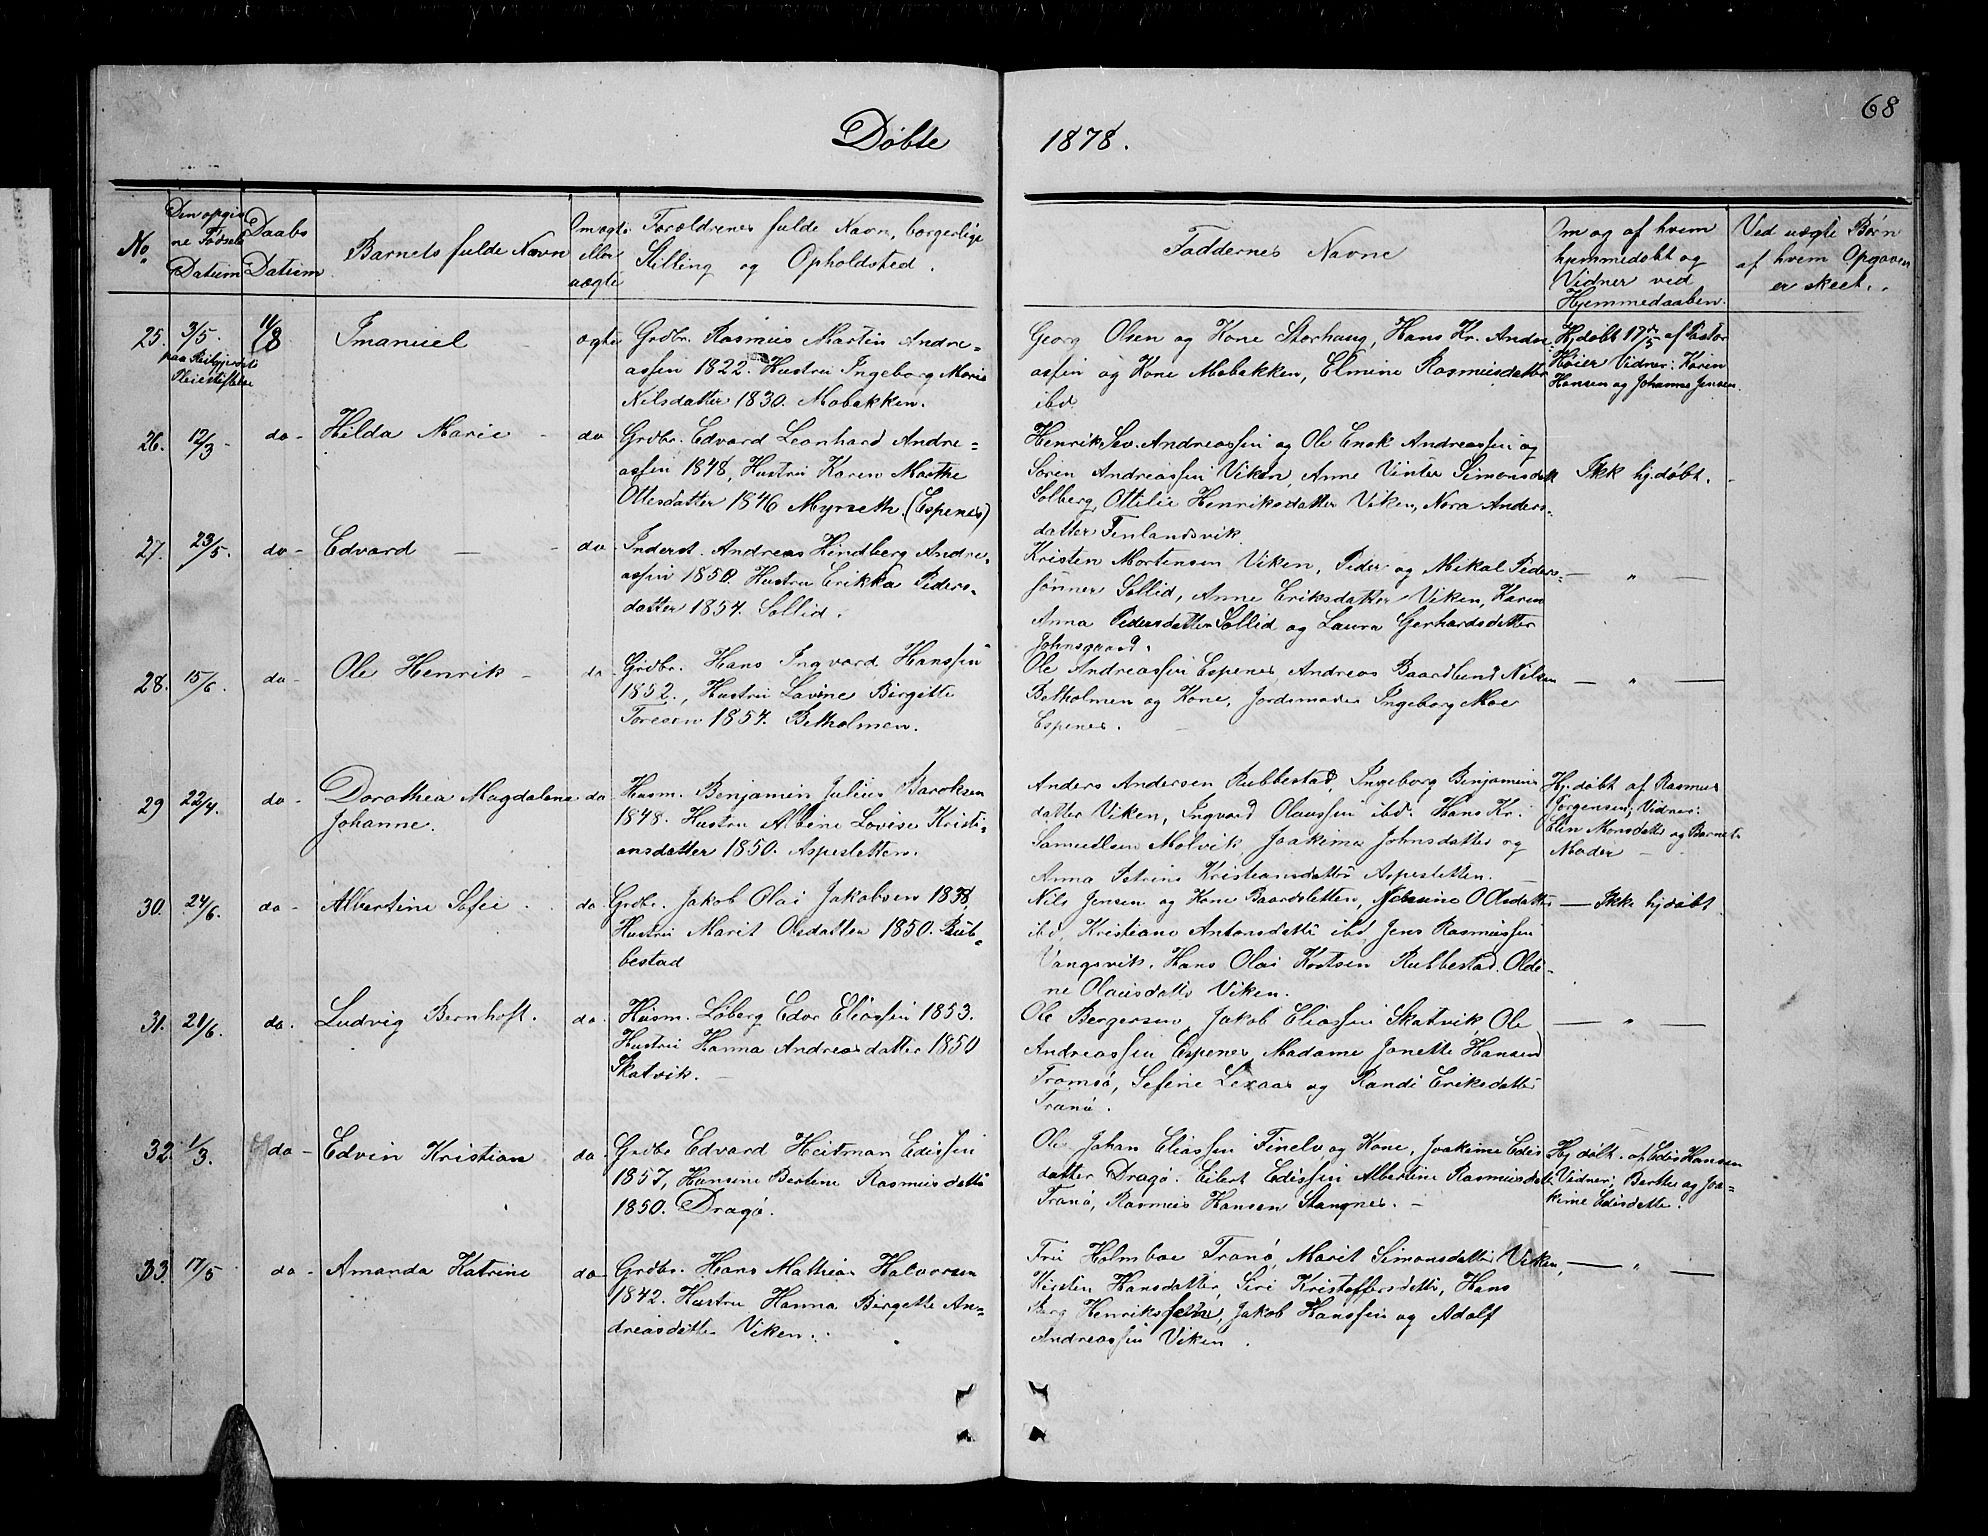 68
Döbte 1878.
No.
Den opgiv
ne Fødsels
Datum
Daabs
Datum
Barnets fulde Navn
Om ægte
eller
uægte
Forældrenes fulde Navn, borgerlige
Stilling og Opholdsted.
Faddernes Navne
Om og af hvem
hjemmedøbt og
Vidner ved
Hjemmedaaben.
Ved uægte Børn
af hvem Opgaven
er skeet.
25. 3/5 11/8 Imanuel ægte
Grdbr. Rasmus Martin Andre=
assen 1822. Hustru Ingeborg Marie
Nilsdatter 1830. Mobakken.
Georg Olsen og Kone Storhaug, Hans Kr. Andre
assen og Kone Mobakken, Elmine Rasmusdatter
ibd.
Hj.døbt 17/5 af Pastor
Høier Vidner: Karen
Hansen og Johanna Jensen.
26. 12/3 - do - Hilda Marie - do
Grdbr. Edvard Leonhard Andre=
assen 1848, Hustru Karen Marthe
Ottesdatter 1846 Myrseth. (Espenes)
Henrik Sev. Andreassen og Ole Enok Andreassen og
Søren Andreassen Viken, Anne Vinter Simonsdatt
Solberg, Ottilie Henriksdatter Viken, Nora Anders-
datter Finlandsvik.
Ikk hj.døbt.
27. 23/5. do - Edvard - do
Inderst. Andreas Lindberg Andre-
assen 1850. Hustru Erikka Peders-
datter 1854. Sollid.
Kristen Mortensen Viken, Peder og Mikal Peders-
sønner Sollid, Anne Eriksdatter Viken, Karen
Anna Pedersdatter Sollid og Laura Gerhardsdatter
Johnsgaard.
— " —
28. 15/6. do - Ole Henrik - do
Grdbr. Hans Ingvard Hanssen
1852., Hustru Lavine Birgitte
Toresen 1854. Betholmen.
Ole Andreassen Espenes, Andreas Baardlund Nilsen
Betholmen og Kone, Jordemoder Ingeborg Moe
Espenes.
— " —
29 22/4. do - Dorothea Magdalena do
Johanne.
Husm. Benjamin Julius Baroksen
1848. Hustru Albine Lovise Kristi-
ansdatter 1850. Aspesletten.
Anders Andersen Rubbestad, Ingeborg Benjamins
datter Viken, Ingvard Olaussen ibd. Hans Kr.
Samuelsen Molvik, Joakima Johnsdatter og
Anna Petrine Kristiansdatter Aspesletten.
Hj.døbt af Rasmus
Jørgensen; Vidner:
Elen Monsdatt og Barnets
Moder -
30. 24/6. do - Albertine Sofie. do.
Grdbr. Jakob Olai Jakobsen 1838,
Hustru Marit Olsdatter 1850. Rub-
bestad
Nils Jensen og Kone Baardsletten, Olsdatter
ibd, Kristiane Antonsdatt ibd, Jens Rasmussen
Vangsvik, Hans Olai Rubbestad. Olde-
ne Olausdatt Viken.
— Ikke hj.døbt
31. 21/6. do. Ludvig Bernhoft. do.
Husm. Løberg Edor Eliassen 1853.
Hustru Hanna Andreasdatter 1850
Skatvik. -
Ole Bergersen, Jakob Eliassen Skatvik, Ole
Andreassen Espenes, Madame Janette Hansen
Tromsø, Sefine Lexaas og Randi Eriksdatter
Tranø.
— " —
32. 1/3. do - Edvin Kristian do.
Grdbr Edvard Heitman Edissen
1857, Hansine Bertine Rasmusdatt
1850. Dragø.
Ole Johan Eliassen Finelv og Kone, Joakima Edis
datter Dragø. Eilert Edissen Albertine Rasmusdatt
Tranø, Rasmus Hansen Stangnes. -
Hj.døbt. af Edis Hansen
Vidner; Berthe og Joa=
kime Edisdatte.
33. 17/5 do - Amanda Katrine do
Grdbr. Hans Mathias Halvorsen
1842. Hustru Hanna Birgette An-
dreasdatt Viken.
Fru Holmboe Tranø, Marit Simonsdatter Viken,
Kirsten Hansdatter, Siri Kristoffersdatt, Hans
Berg Henrikssen, Jakob Hanssen og Adolf
Andreassen Viken.
— " —